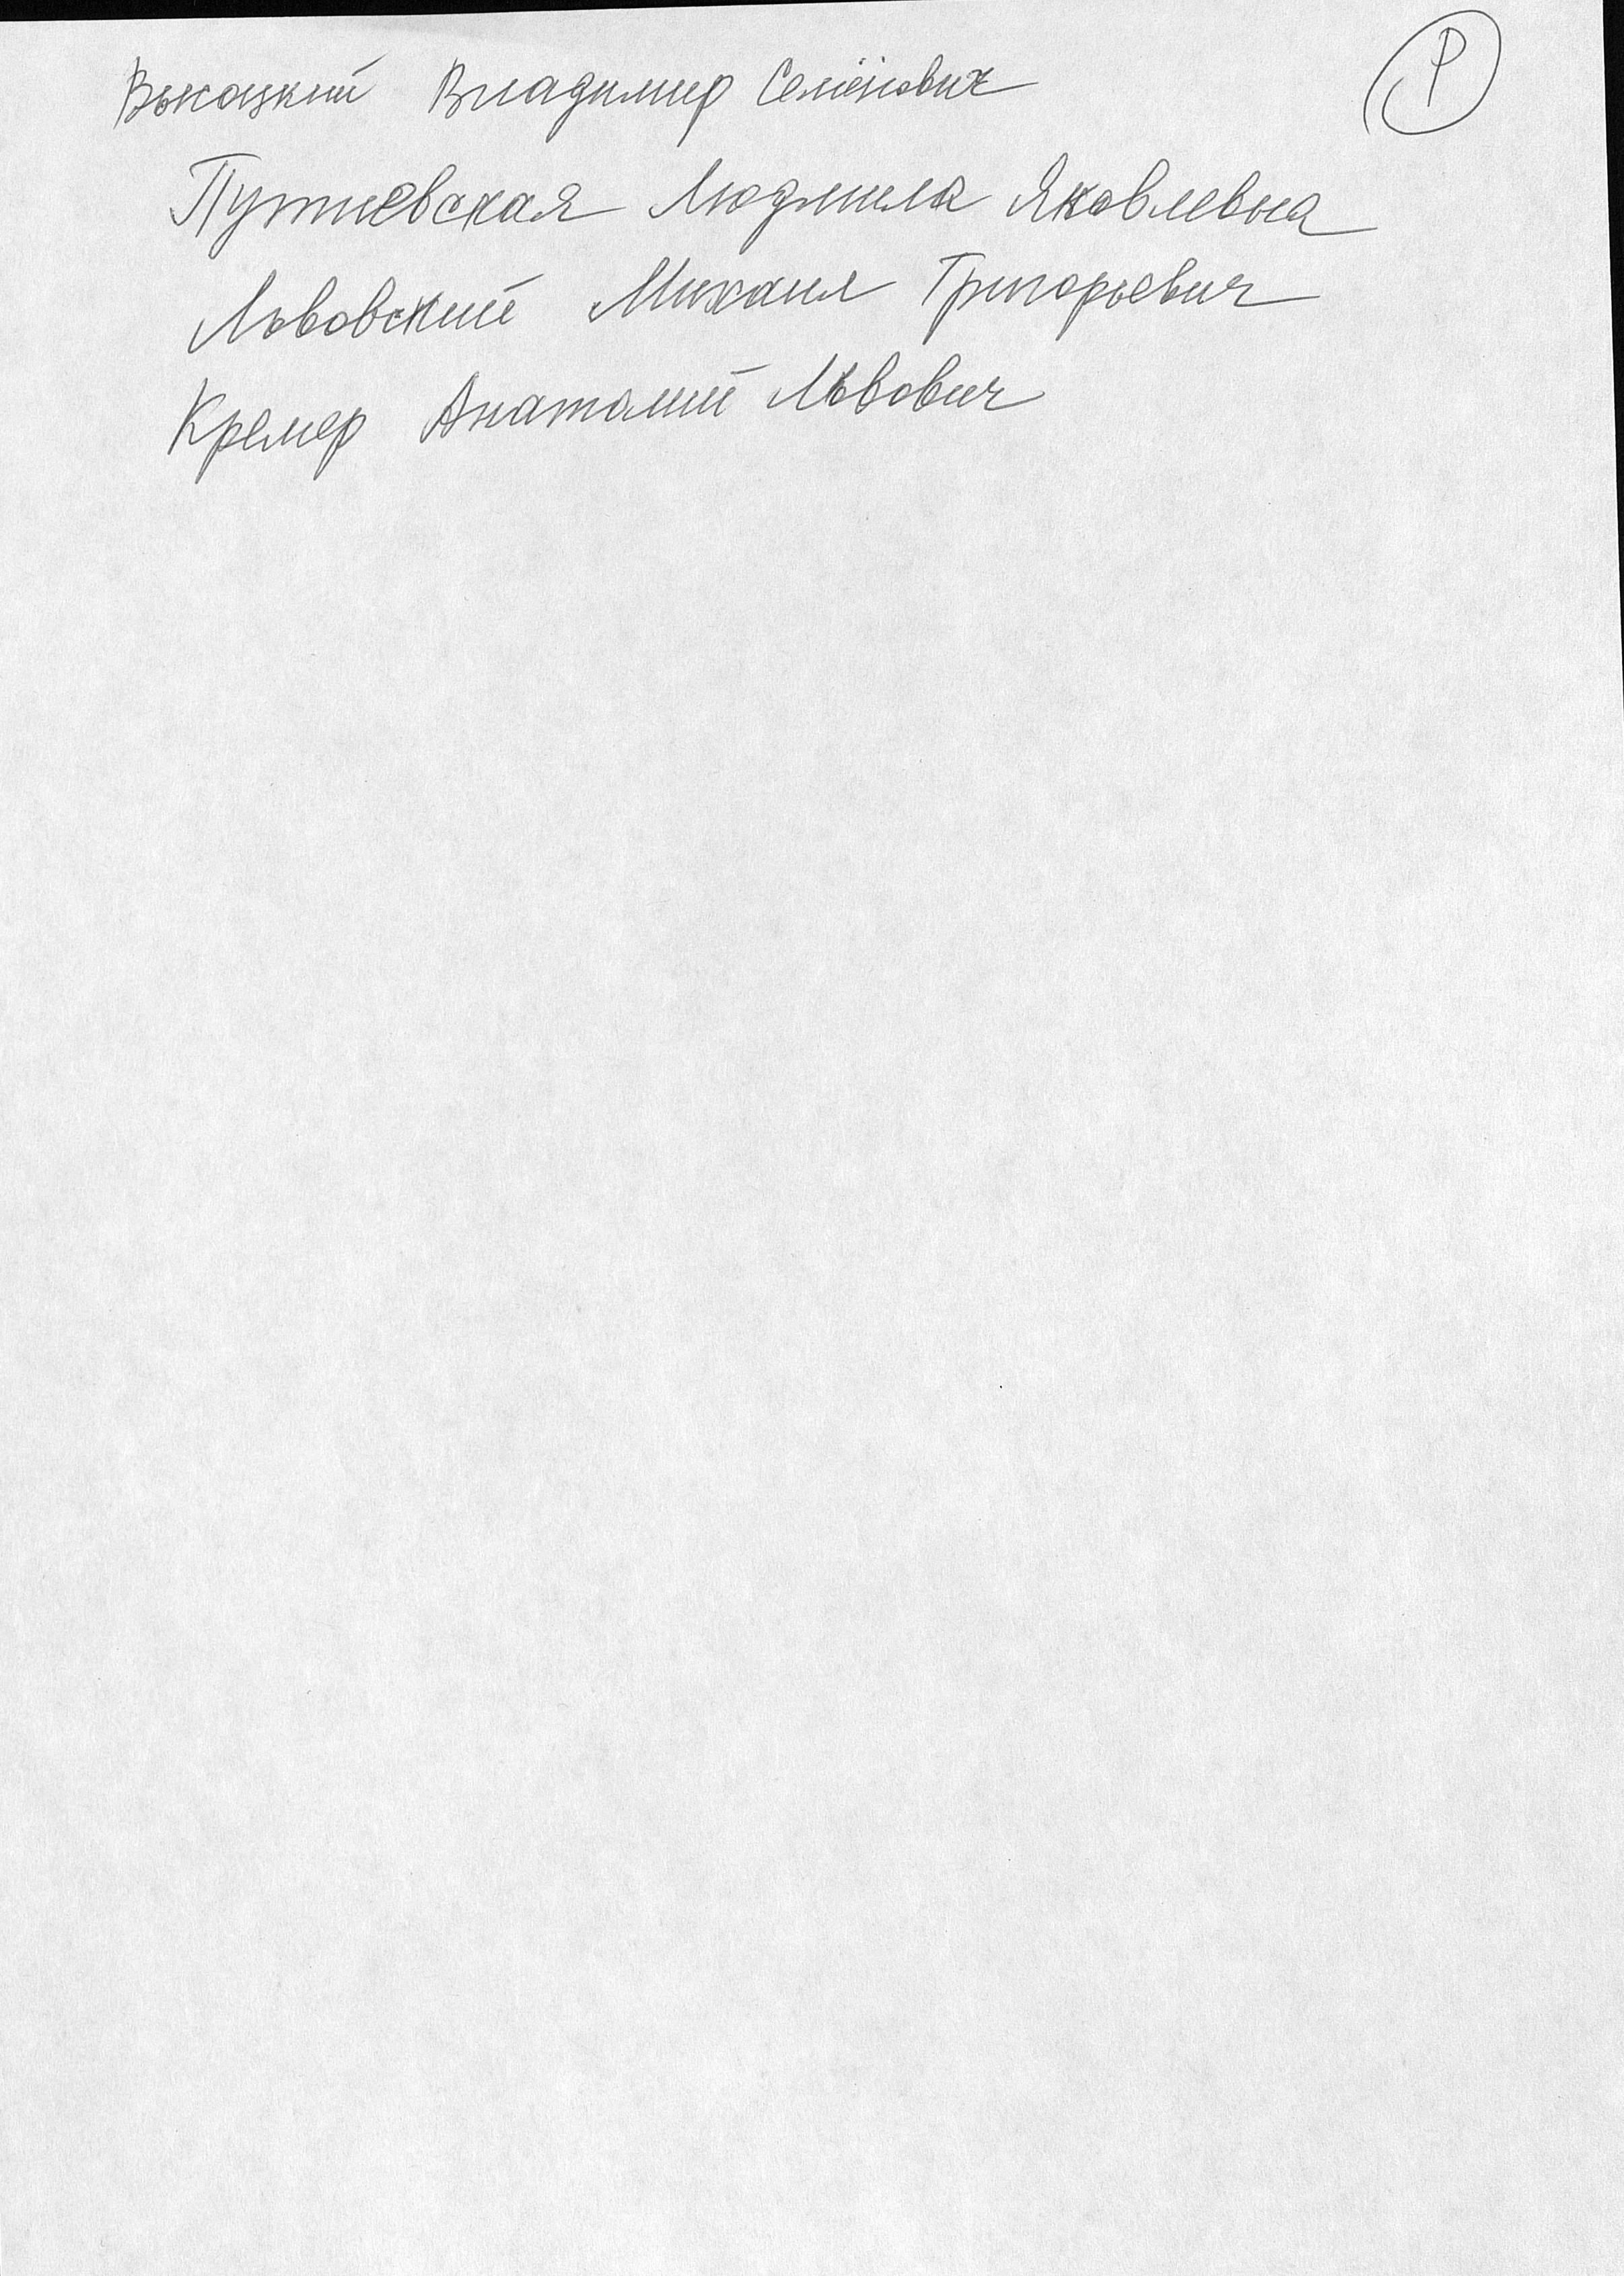 Р
Высоцкий Владимир Семёнович
Путиевская Людмила Яковлевна
Львовский Михаил Григорьевич
Кремер Анатолий Львович